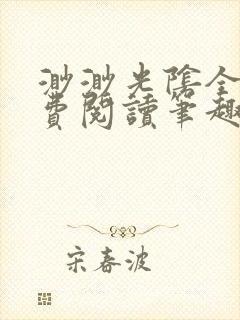 渺渺光陰全
費閱讀筆趣
宋春波